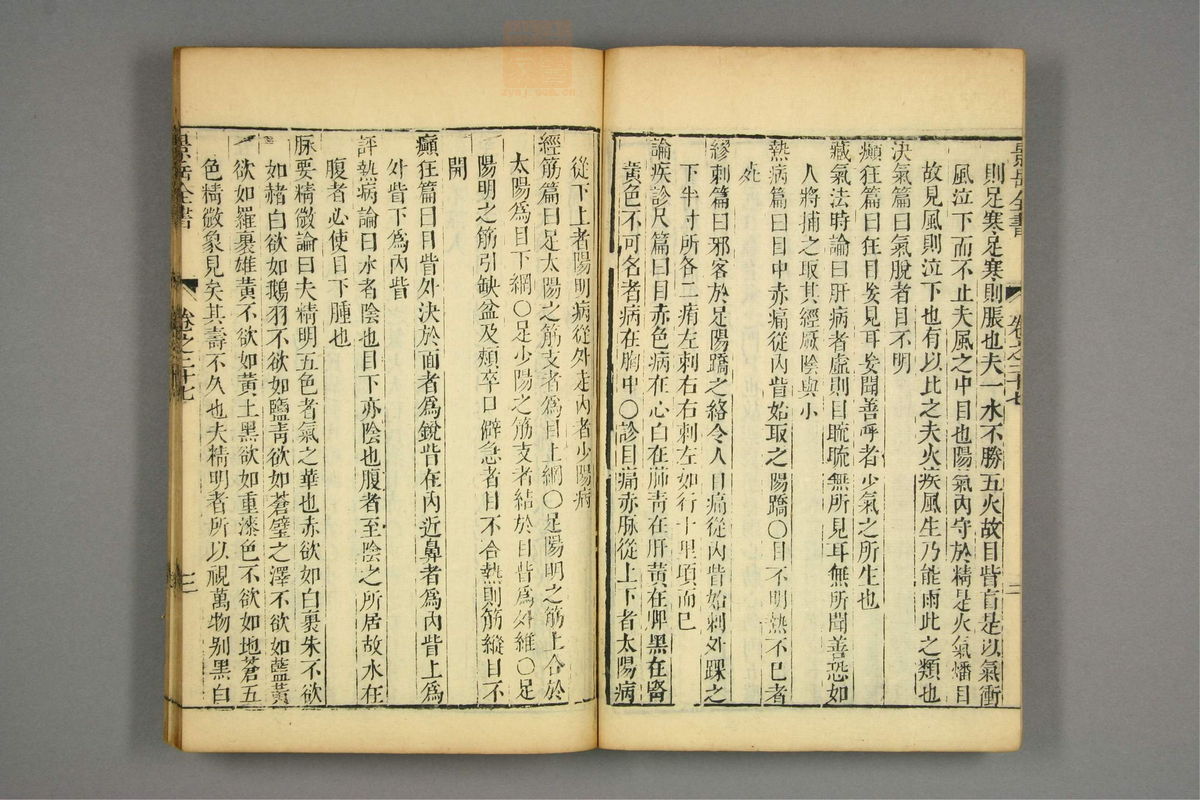 景岳全書 卷之二十七 二
則足寒足寒則脹也夫一水不勝五火故目眥盲是以氣衝
風泣下而不止夫風之中目也陽氣內守於精是火氣燔目
故見風則泣下也有以比之夫火疾風生乃能雨此之類也
決氣篇曰氣脫者目不明
癲狂篇曰狂目妄見耳妄聞善呼者少氣之所生也
藏氣法時論曰肝病者虛則目䀮䀮無所見耳無所聞善恐如
人將捕之取其經厥陰與少
熱病篇曰目中赤痛從內眥始取之陽蹻〇目不明熱不已者
死
繆刺篇曰邪客於足陽蹻之絡令人目痛從內眥始刺外踝之
下半寸所各二痏左刺右右刺左如行十里頃而已
論疾診尺篇曰目赤色病在心白在肺青在肝黃在脾黑在腎
黃色不可名者病在胸中〇診目痛赤脉從上下者太陽病
從下上者陽明病從外走內者少陽病
經筋篇曰足太陽之筋支者為目上綱〇足陽明之筋上合於
太陽為目下綱〇足少陽之筋支者結於目眥為外維〇足
陽明之筋引缺盆及頰卒口僻急者目不合熱則筋縱目不
開
癲狂篇曰目眥外決於面者為銳眥在內近鼻者為內眥上為
外眥下為內眥
評熱病論曰水者陰也目下亦陰也腹者至陰之所居故水在
腹者必使目下腫也
脉要精微論曰夫精明五色者氣之華也赤欲如白裹朱不欲
如赭白欲如鵝羽不欲如鹽青欲如蒼璧之澤不欲如藍黃
欲如羅裹雄黃不欲如黃土黑欲如重漆色不欲如地蒼五
色精微象見矣其壽不久也夫精明者所以視萬物別黑白
景岳全書 卷之二十七 三